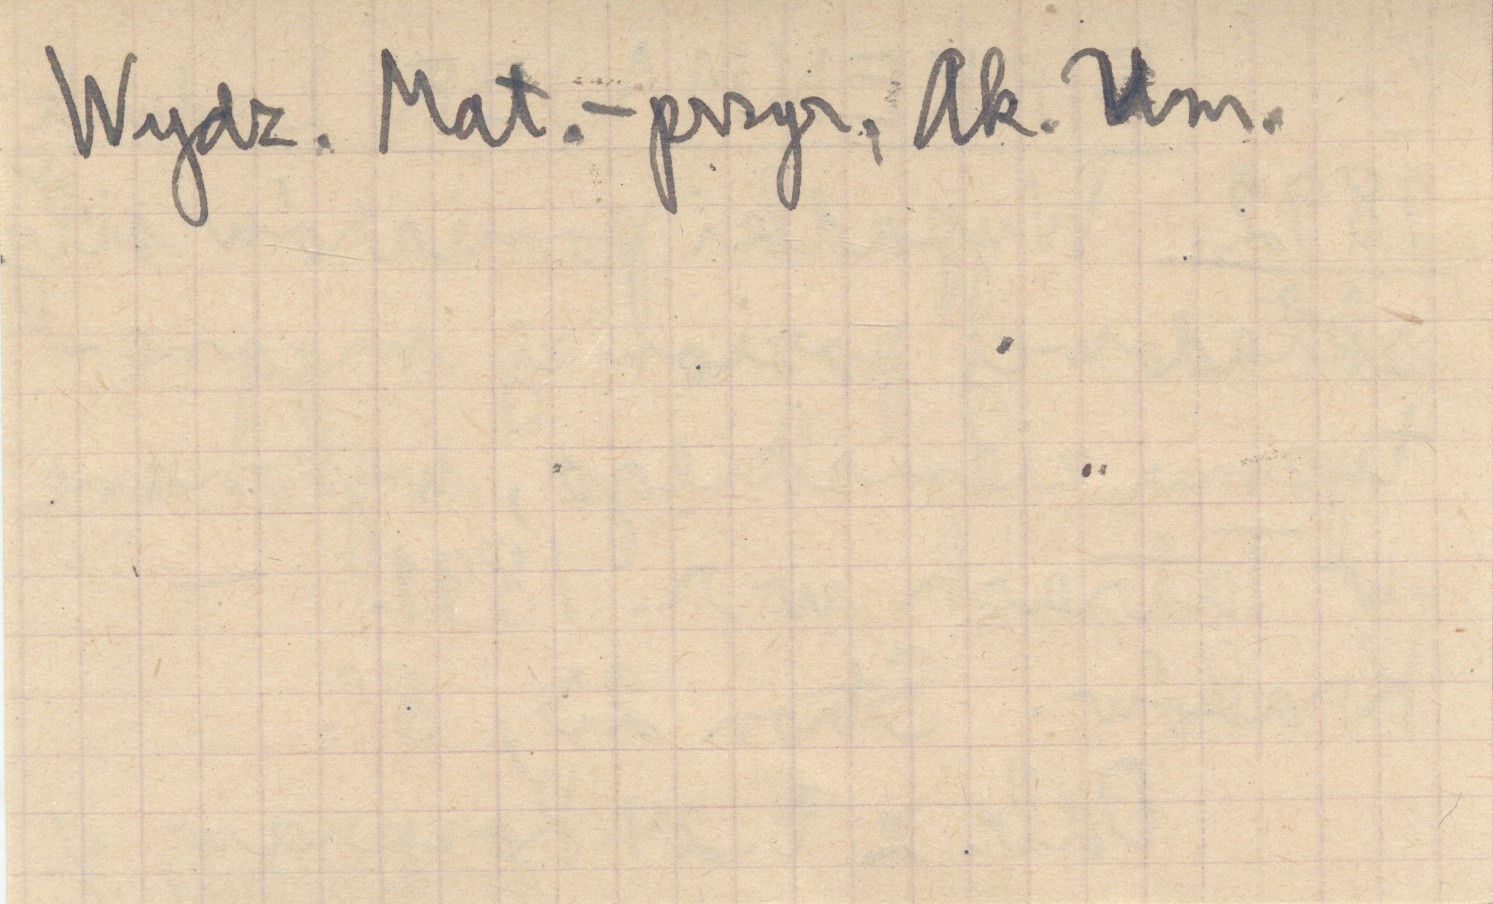 Wydz. Mat.-przyr., Ak. Um.